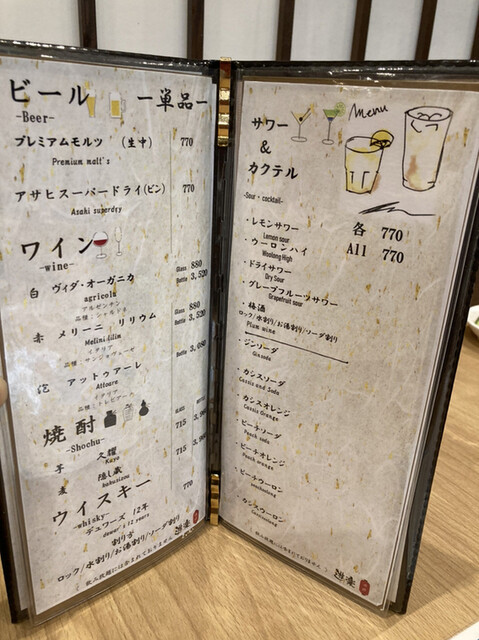 ビール
-Beer-
ー単品ー
プレミアムモルツ (生中) 770
Premium malt's
アサヒスーパードライ(ビン) 770
Asahi superdry
ワイン
-wine-
白 ヴィダ・オーガニカ Glass 880
agricola Bottle 3,520
アルゼンチン
品種：シャルドネ
赤 メリーニ リリウム Glass 880
Bottle 3,520
イタリア
泡 アットゥアーレ Bottle 3,080
Attoare
イタリア
焼酎
-Shochu-
芋 久耀 715
Kuyo
麦 隠し蔵 715
ウィスキー 770
-whisky-
デュワーズ 12年
dewar's 12 years
割り方
ロック/水割り/お湯割り/ソーダ割り
Menu
サワー
&
カクテル
-Sour・cocktail-
・レモンサワー 各 770
Lemon sour
・ウーロンハイ All 770
Woolong High
・ドライサワー
Dry Sour
・グレープフルーツサワー
Grapefruit sour
・梅酒
ロック/水割り/お湯割り/ソーダ割り
Plum wine
・ジンソーダ
Gin soda
・カシスソーダ
Cassis and Soda
・カシスオレンジ
Cassis Orange
・ピーチソーダ
Peach soda
・ピーチオレンジ
Peach orange
・ピーチウーロン
・カシスウーロン